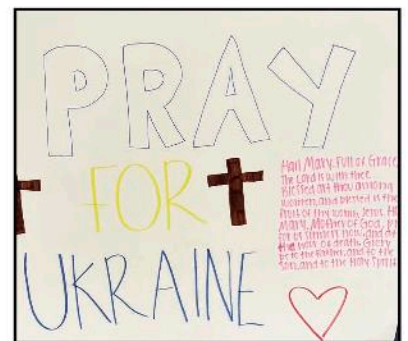 PRAY
FOR
UKRAINE
Hail Mary, Full of Grace
The Lord is with thee
Blessed art thou among
women, and blessed is the
fruit of thy womb, Jesus. Ha
Mary, Mother of God, pr
for us sinners now, and at
the hour of death. Glory
be to the Father, and to the
Son, and to the Holy Spirit